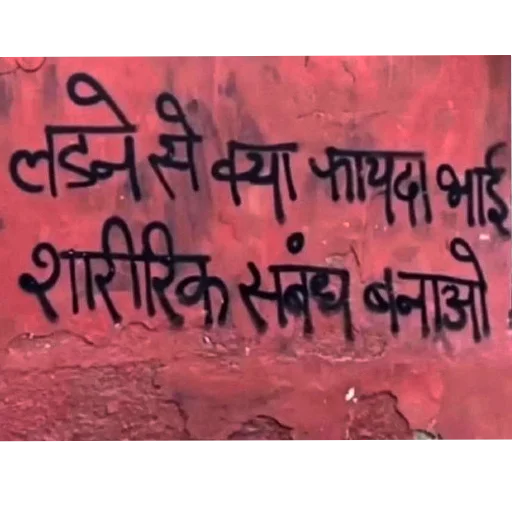 लडने से क्या फायदा भाई
शारीरिक सबंध बनाओ